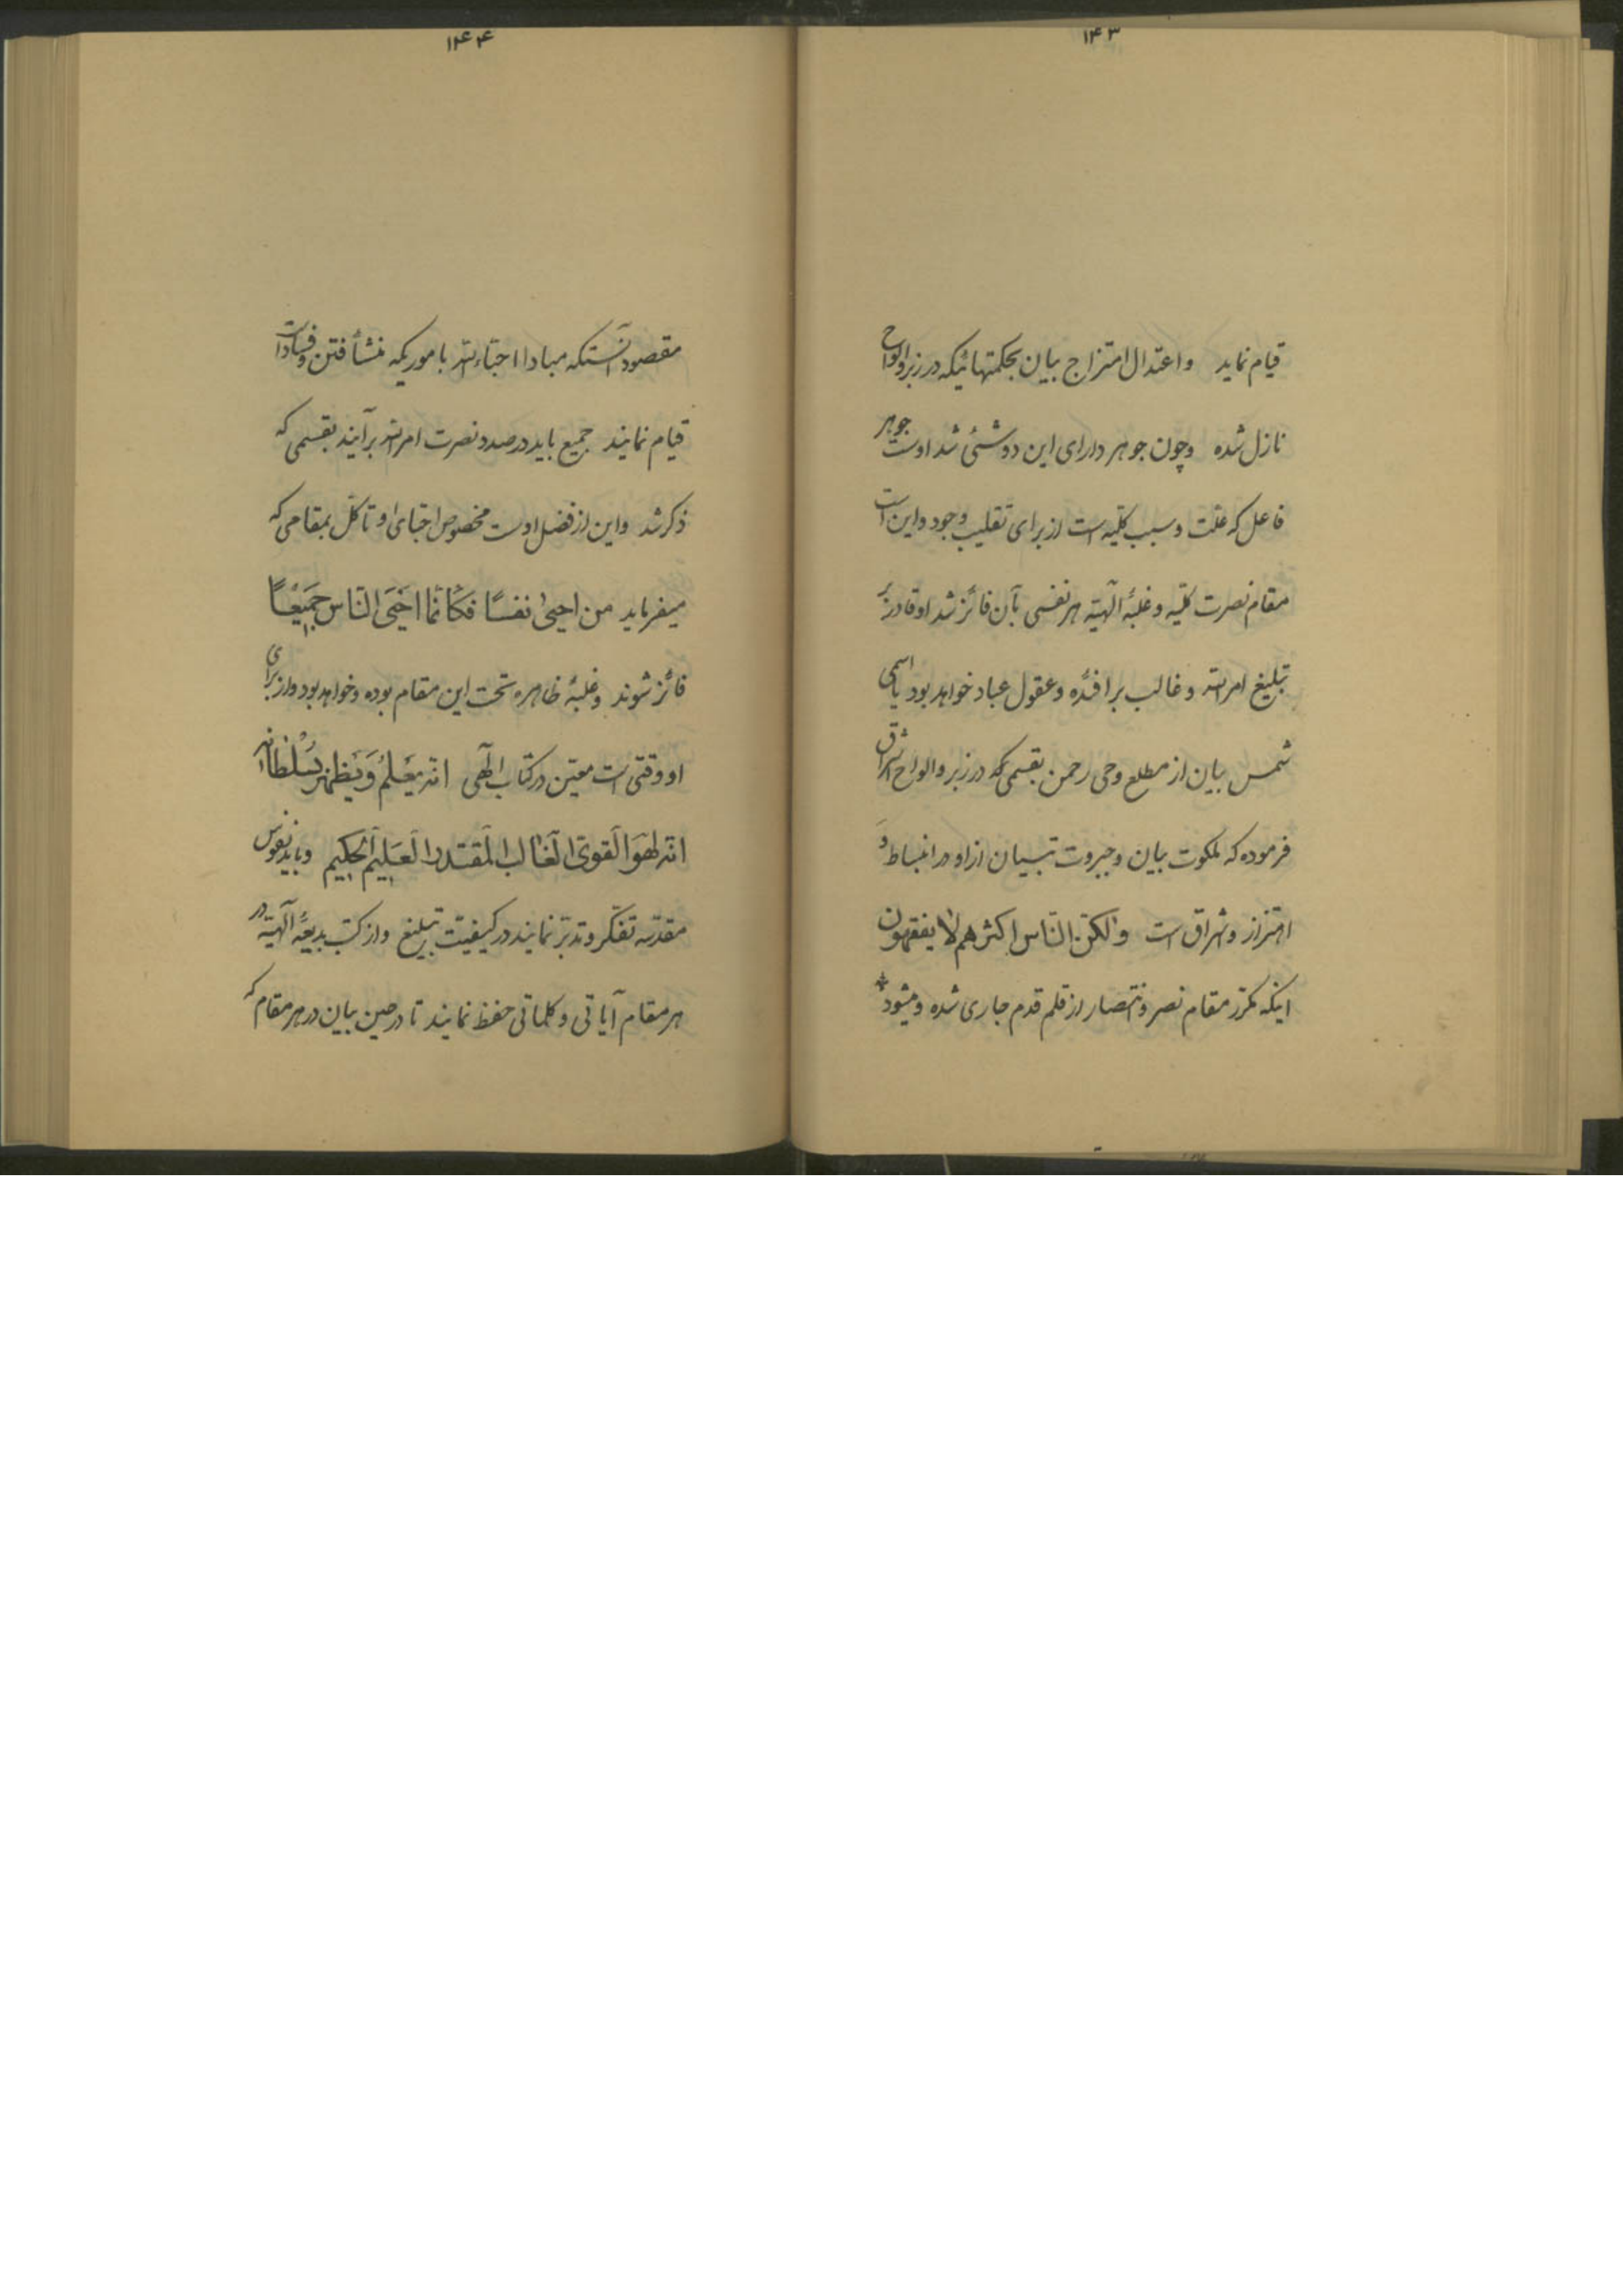 ۱۴۳
قیام نماید و اعتدال امتزاج بیان بحکمتهائیکه در زبر و الواح
نازل شده و چون جوهر دارای این دو شئ شد اوست جوهر
فاعل که علّت و سبب کلّیه است از برای تقلیب وجود و این است
مقام نصرت کلّیه و غلبهٔ الهیّه هر نفسی بآن فائز شد او قادر بر
تبلیغ امر الله و غالب بر افئده و عقول عباد خواهد بود یا اسمی
شمس بیان از مطلع وحی رحمن بقسمی که در زبر و الواح اشراق
فرموده که ملکوت بیان و جبروت تبیان از او در انبساط و
اهتزاز و اشراق است ولکنّ النّاس اکثرهم لا یفقهون
اینکه مکرّر مقام نصر و انتصار از قلم قدم جاری شده و میشود *
۱۴۴
مقصود آنستکه مبادا احبّاءالله باموریکه منشأ فتن و فسادات است
قیام نمایند جمیع باید در صدد نصرت امر الله برآیند بقسمی که
ذکر شد و این از فضل اوست مخصوص احبّای او تا کلّ بمقامی که
میفرماید من احیی نفسًا فکَانّما اَحیَی النّاس جَمیعًا
فائز شوند و غلبهٔ ظاهره تحت این مقام بوده و خواهد بود و از برای
او وقتی است معیّن در کتاب الهی انّه یَعلَمُ وَ یَظهر بسُلطانه
انّه لهوَ القویّ الغالب المقتدر العَلیم الحکیم و باید نفوس
مقدّسه تفکّر و تدبّر نمایند در کیفیّت تبلیغ و از کتب بدیعهٔ الهیّه در
هر مقام آیاتی و کلماتی حفظ نمایند تا در حین بیان در هر مقام که